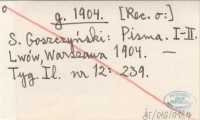 g. 1904. [Rec. o:]
S. Goszczyński: Pisma. I-II.
Lwów, Warszawa 1904. —
Tyg. Il. nr 12: 239.